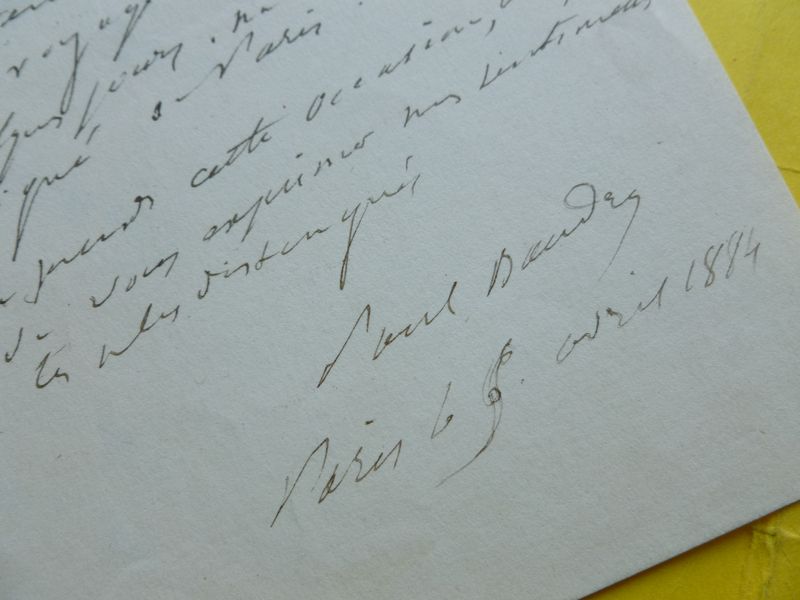 voyage
jours, 
à Paris.
prends cette occasion,
de vous exprimer mes sentiments
les plus distingués
Paul Baudry
Paris le 8. avril 1884